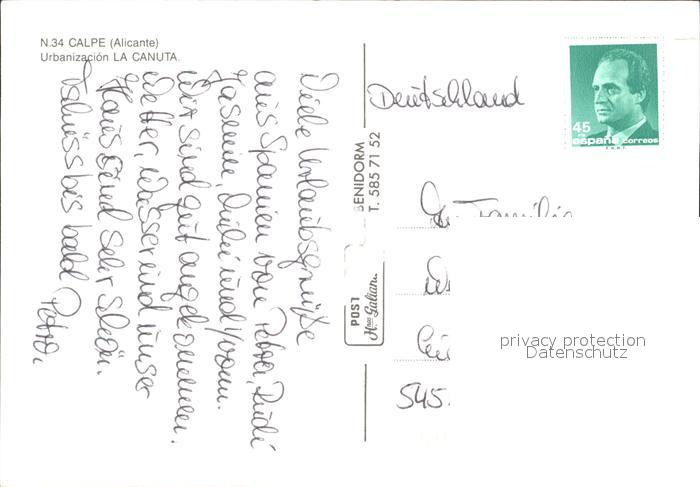 N.34 CALPE (Alicante)
Urbanización LA CANUTA.
Viele Urlaubsgrüße
aus Spanien von Petra, Rudi
Jasmin, und Yvonn.
Wir sind gut angekommen.
Wetter, Wasser und unser
Haus sind sehr schön.
Tschüss bis bald Petra.
BENIDORM
T. 585 71 52
POST
Hnos Galiana
Deutschland
45
españa correos
Familie
545
privacy protection
Datenschutz